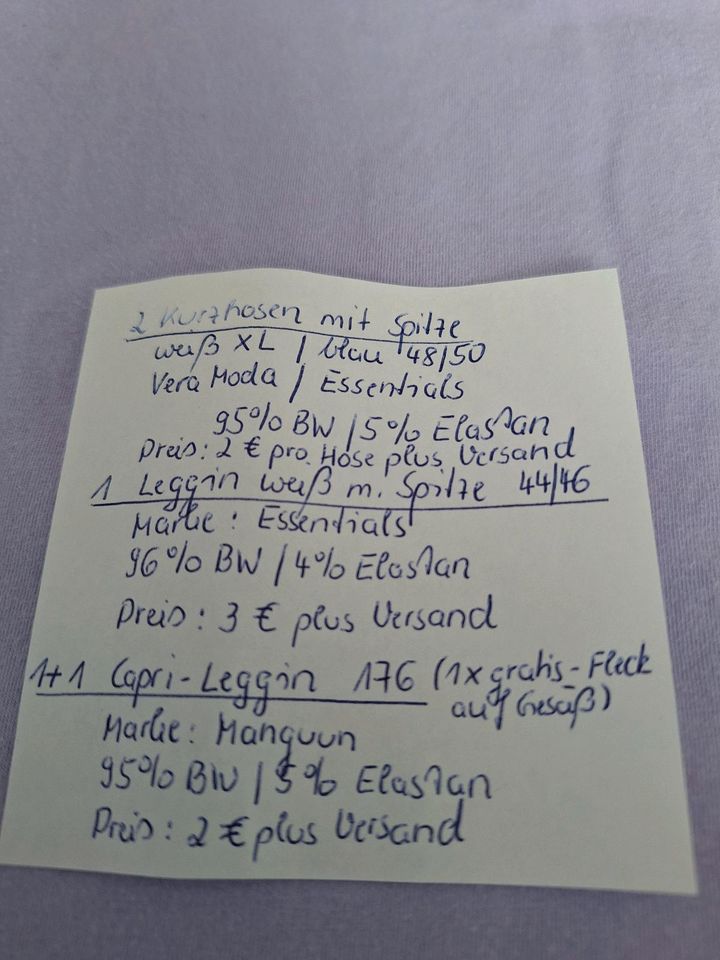 2 Kurzhosen mit Spitze
weiß XL / blau 48/50
Vera Moda / Essentials
95% BW / 5% Elastan
Preis: 2 € pro Hose plus Versand
1 Leggin weiß m. Spitze 44/46
Marke: Essentials
96% BW / 4% Elastan
Preis: 3 € plus Versand
1+1 Capri-Leggin 176 (1x gratis-Fleck
auf Gesäß)
Marke: Manguun
95% BW / 5% Elastan
Preis: 2 € plus Versand